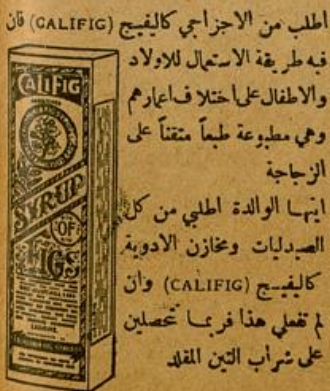 اطلب من الاجزاجي كاليفيج (CALIFIG) فان
فيه طريقة الاستعمال للاولاد
والاطفال على اختلاف اعمارهم
وهي مطبوعة طبعاً متقناً على
الزجاجة
ايتها الوالدة اطلبي من كل
الصيدليات ومخازن الادوية
كاليفيج (CALIFIG) وان
لم تفعلي هذا فربما تحصلين
على شراب التين المقلد
CALIFIG
SYRUP
OF
FIGS